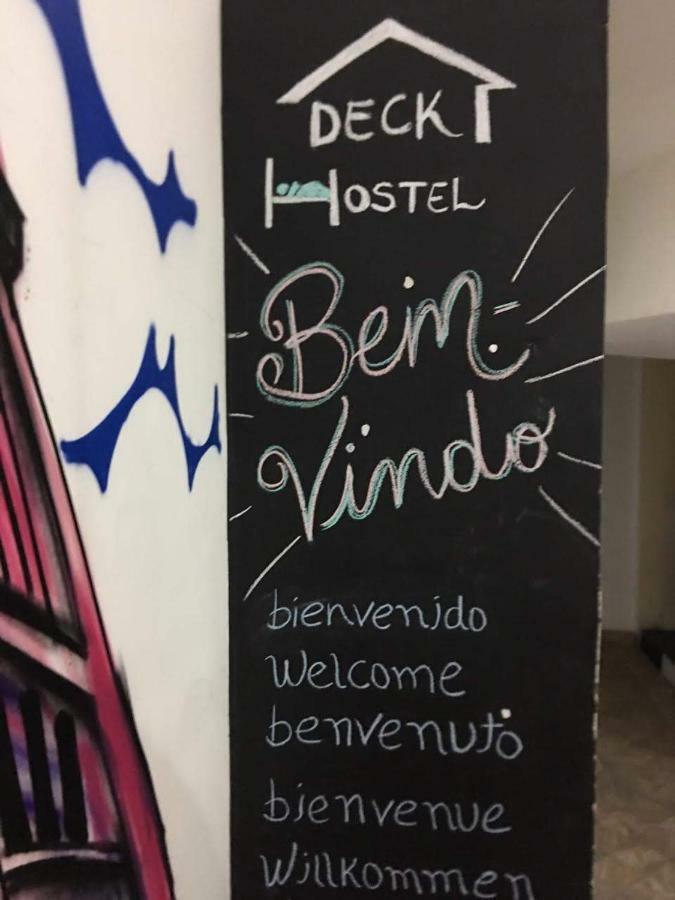 DECK
HOSTEL
Bem-
Vindo
bienvenido
Welcome
benvenuto
bienvenue
Willkommen